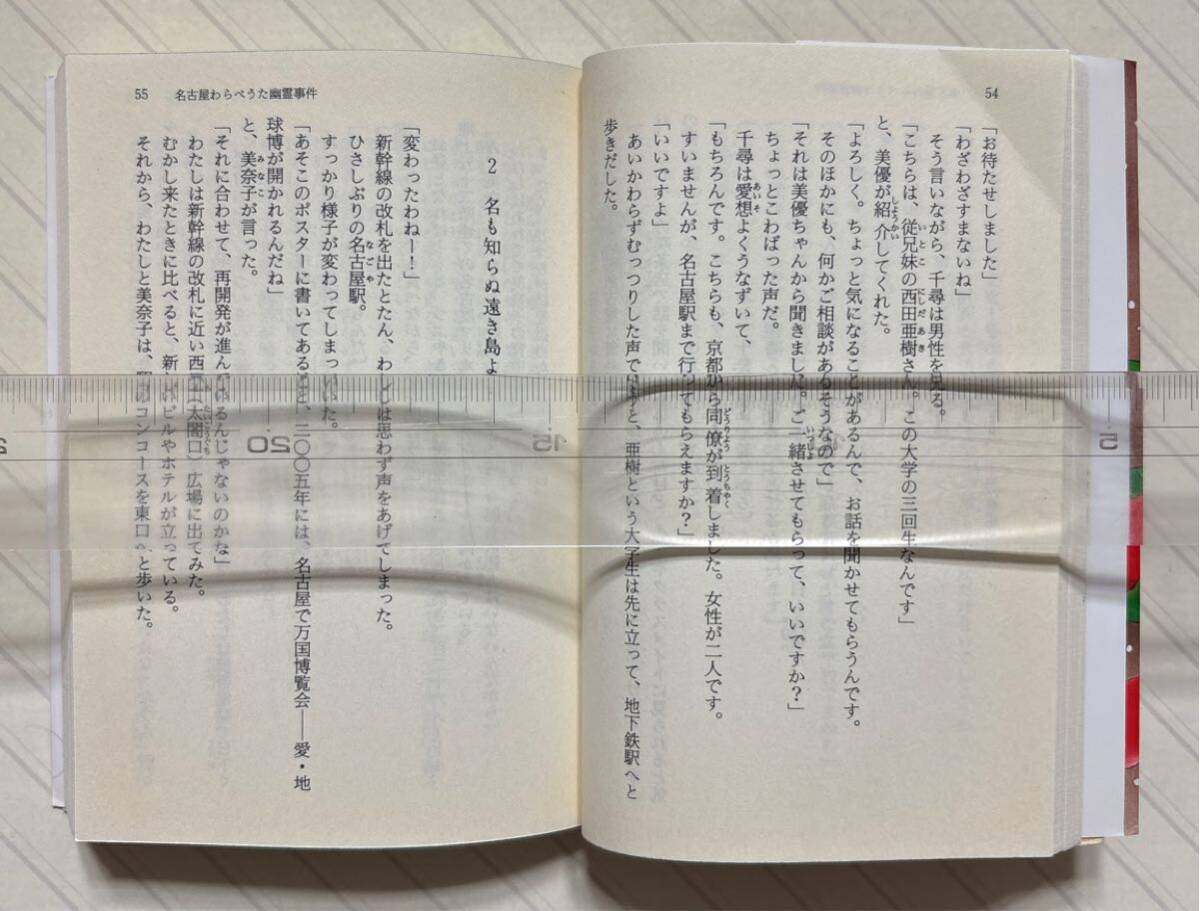 54
「お待たせしました」
「わざわざすまないね」
そう言いながら、千尋は男性を見る。
「こちらは、従兄妹の西田亜樹さん。この大学の三回生なんです」
と、美優が紹介してくれた。
「よろしく。ちょっと気になることがあるんで、お話を聞かせてもらうんです。
そのほかにも、何かご相談があるそうなので」
「それは美優ちゃんから聞きました。ご一緒させてもらって、いいですか？」
ちょっとこわばった声だ。
千尋は愛想よくうなずいて、
「もちろんです。こちらも、京都から同僚が到着しました。女性が二人です。
すいませんが、名古屋駅まで行ってもらえますか？」
「いいですよ」
あいかわらずむっつりした声で と、亜樹という大学生は先に立って、地下鉄駅へと
歩きだした。
55 名古屋わらべうた幽霊事件
2 名も知らぬ遠き島よ
「変わったわねー！」
新幹線の改札を出たとたん、わ しは思わず声をあげてしまった。
ひさしぶりの名古屋駅。
すっかり様子が変わってしまっ いた。
「あそこのポスターに書いてある と、二〇〇五年には、名古屋で万国博覧会――愛・地
球博が開かれるんだね」
と、美奈子が言った。
「それに合わせて、再開発が進ん いるんじゃないのかな」
わたしは新幹線の改札に近い西 （太閤口）広場に出てみた。
むかし来たときに比べると、新 いビルやホテルが立っている。
それから、わたしと美奈子は、 のコンコースを東口へと歩いた。
5
15
20
2